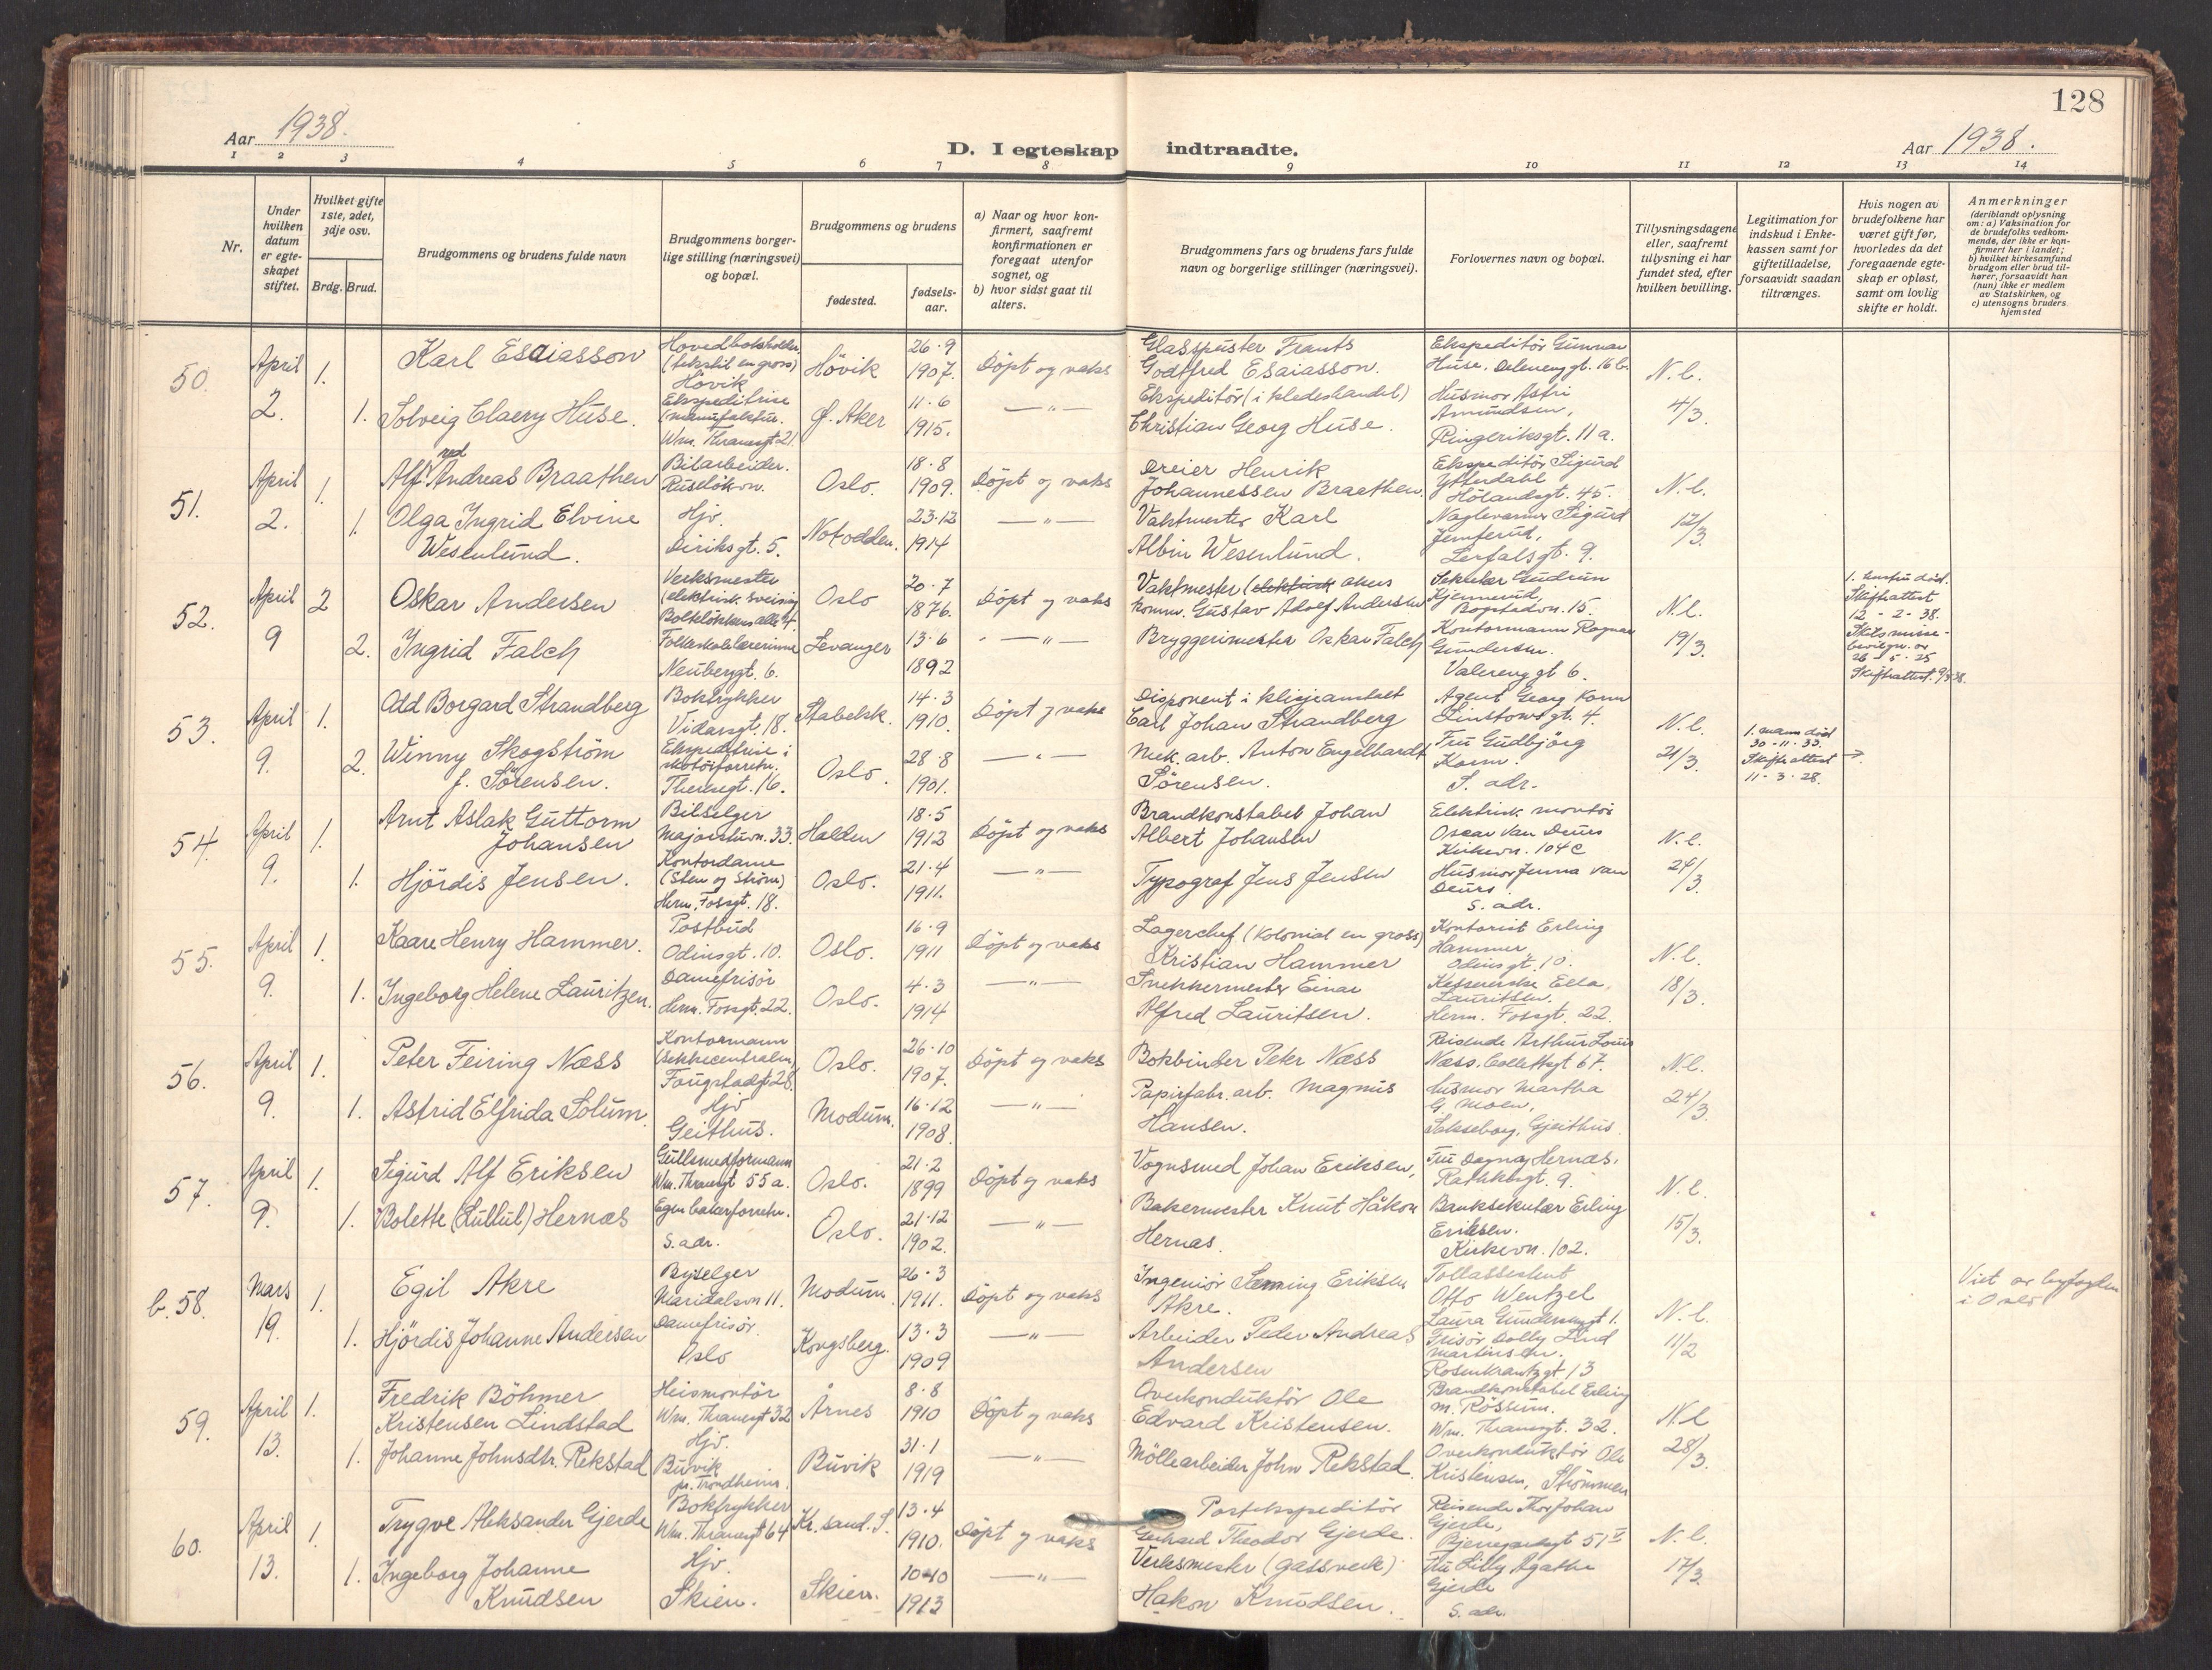 128
Aar 1938.
D. I egteskap indtraadte.
Aar 1938.
1 2 3 4 5 6 7 8 9 10 11 12 13 14
Nr.
Under hvilken datum er egteskapet stiftet.
Hvilket gifte 1ste, 2det, 3dje osv.
Brdg. Brud.
Brudgommens og brudens fulde navn
Brudgommens borgerlige stilling (næringsvei) og bopæl.
Brudgommens og brudens
fødested.
fødselsaar.
a) Naar og hvor konfirmert, saafremt konfirmationen er foregaat utenfor sognet, og
b) hvor sidst gaat til alters.
Brudgommens fars og brudens fars fulde navn og borgerlige stillinger (næringsvei).
Forlovernes navn og bopæl.
Tillysningsdagene eller, saafremt tillysning ei har fundet sted, efter hvilken bevilling.
Legitimation for indskud i Enkekassen samt for giftetilladelse, forsaavidt saadan tiltrænges.
Hvis nogen av brudefolkene har været gift før, hvorledes da det foregaaende egteskap er opløst, samt om lovlig skifte er holdt.
Anmerkninger
(deriblandt oplysning om: a) Vaksination for de brudefolks vedkommende, der ikke er konfirmert her i landet; b) hvilket kirkesamfund brudgom eller brud tilhører, forsaavidt han (hun) ikke er medlem av Statskirken, og c) utensogns bruders hjemsted
50. April 2. 1. Karl Esaiasson Hovedboksholder (tekstil engros) Hövik Hövik 26·9 1907. Döpt og vaks Glasspuster Frants Godtfred Esaiasson. Ekspeditör Gunnar Huse, Delenenggt. 16 b. N.l. 4/3.
1. Solveig Claery Huse. Ekspeditrise (manufaktur. Wm. Thranesgt 21. Ø. Aker 11·6 1915. —"— Ekspeditör (i kledeshandel) Christian Georg Huse. Husmor Astri Amundsen, Ringeriksgt. 11 a.
51. April 2. 1. Alf Andreas Braathen Bilarbeider. Ruselökvn. Oslo. 18·8 1909. Döpt og vaks Dreier Henrik Johannessen Braathen. Ekspeditör Sigurd Ytterdahl Hölandsgt. 45. N.l. 12/3.
1. Olga Ingrid Elvine Wesenlund. Hjv. Diriksgt. 5. Notodden. 23·12 1914 —"— Vaktmester Karl Albin Wesenlund. Sigurd Jemterud, Lerfalsgt. 9.
52. April 9 2 Oskar Andersen Verksmester (elektrisk sveising Bolteløkkens allé 4. Oslo 20·7 1876. Döpt og vaks Vaktmester (elektrisk Akers komm. Gustav Adolf Andersen Sekretær Gudrun Kjennerud, Bogstadvn. 15. N.l. 19/3. 1. hustru död. Skifteattest 12-2-38.
2. Ingrid Falch Folkeskolelærerinne Neubergt. 6. Levanger 13·6 1892 —"— Bryggerimester Oskar Falch Kontormann Ragnar Gundersen. Valerenggt 6. Skilsmissebevilgn. av 26-5-25 Skifteattest. 9/3 38.
53. April 9. 1. Odd Borgard Strandberg Boktrykker Vidarsgt. 18. Stabekk. 14·3 1910. Döpt og vaks Disponent i klisjeanstalt Carl Johan Strandberg Agent Georg Korm Linstowsgt. 4. N.l. 21/3.
2. Winny Skogström f. Sörensen. Ekspeditrise i skotöiforretn. Theresgt. 16. Oslo. 28·8 1901. —"— Mek. arb. Anton Engelhardt Sörensen. Fru Gudbjörg Korm. S. adr. 1. mann död 30-11-33. Skifteattest → 11-3-28.
54. April 9. 1. Arnt Aslak Guttorm Johansen Bilselger Majorstuvn. 33. Halden 18·5 1912 Döpt og vaks Brandkonstabel Johan Albert Johansen Elektrisk montör Oscar van Deurs Kirkevn. 104 C N.l. 24/3.
1. Hjördis Jensen. Kontordame (Sten og Ström) Herm. Fossgt. 18. Oslo. 21·4 1911. —"— Typograf Jens Jensen Husmor Jenna van Deurs. S. adr.
55. April 9. 1. Kaare Henry Hammer. Postbud Odinsgt. 10. Oslo. 16·9 1911 Döpt og vaks Lagerchef (kolonial en gross) Kristian Hammer Kontorist Erling Hammer Odinsgt. 10. N.l. 18/3.
1. Ingeborg Helene Lauritzen. Damefrisör Herm. Fossgt. 22. Oslo. 4·3 1914 —"— Snekkermester Einar Alfred Lauritsen. Kassererske Ella Lauritsen. Herm. Fossgt. 22.
56. April 9. 1. Peter Feiring Næss Kontormann (Sekkecentralen) Fougstadsgt 28. Oslo. 26·10 1907. Döpt og vaks Bokbinder Peter Næss Reisende Arthur Louis Næss. Collettsgt 67. N.l. 24/3.
1. Astrid Elfrida Solum. Hjv Geithus. Modum. 16·12 1908. —"— Papirfabr. arb. Magnus Hansen. Husmor Martha G. Moen, Geithus.
57. April 9. 1. Sigurd Alf Eriksen Gullsmedformann Wm. Thranesgt 55 a. Oslo. 21·2 1899 Döpt og vaks Vognsmed Johan Eriksen, Fru Dagny Hernæs. Rathkesgt. 9. N.l. 15/3.
1. Bolette (Lullul) Hernæs Egen bakerforretn. S. adr. Oslo. 21·12 1902. —"— Bakermester Knut Håkon Hernæs. Banksekretær Erling Eriksen. Kirkevn. 102.
b. 58. Mars 19. 1. Egil Akre Byselger Maridalsvn 11. Modum 26·3 1911. Döpt og vaks Ingeniör Semming Eriksen Akre. Tollassestent Otto Wentzel Laura Gundersensgt 1. N.l. 11/2 Viet av byfogden i Oslo
1. Hjördis Johanne Andersen Damefrisör. Oslo Kongsberg. 13·3 1909 —"— Arbeider Peder Andreas Andersen Frisör Dolly Lind Martinsen. Rosenkrantzgt 13
59. April 13. 1. Fredrik Böhmer Kristensen Lindstad Heismontör Wm. Thranesgt 32 Årnes 8·8 1910 Döpt og vaks Overkonduktör Ole Edvard Kristensen. Brandkonstabel Erling M. Rössum. Wm. Thranesgt. 32. N.l 28/3.
1. Johanne Johnsdtr. Rekstad Hjv. Buvik pr. Trondheim. Buvik 31·1 1919 —"— Möllearbeider John Rekstad. Overkonduktör Ole Kristensen, Strömmen
60. April 13. 1. Trygve Aleksander Gjerde Boktrykker Wm. Thranesgt 64 Kr. sand. S. 13·4 1910. Döpt og vaks Postekspeditör Gerhard Theodor Gjerde. Reisende Thor Johan Gjerde, Bjerregaardsgt 51 N.l. 17/3.
1. Ingeborg Johanne Knudsen Hjv. Skien. Skien. 10·10 1913 —"— Verksmester (gassverk) Håkon Knudsen. Fru Lilly Agathe Gjerde S. adr.